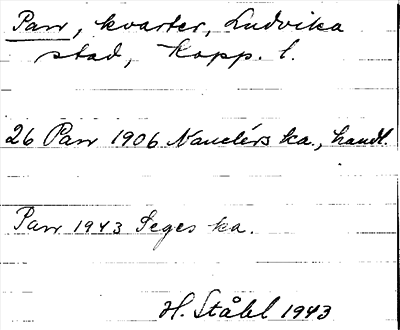 Parr, kvarter, Ludvika
stad, Kopp. l.
26 Parr 1906 Nauclérs ka., handl.
Parr 1943 Seges ka.
H. Ståhl 1943